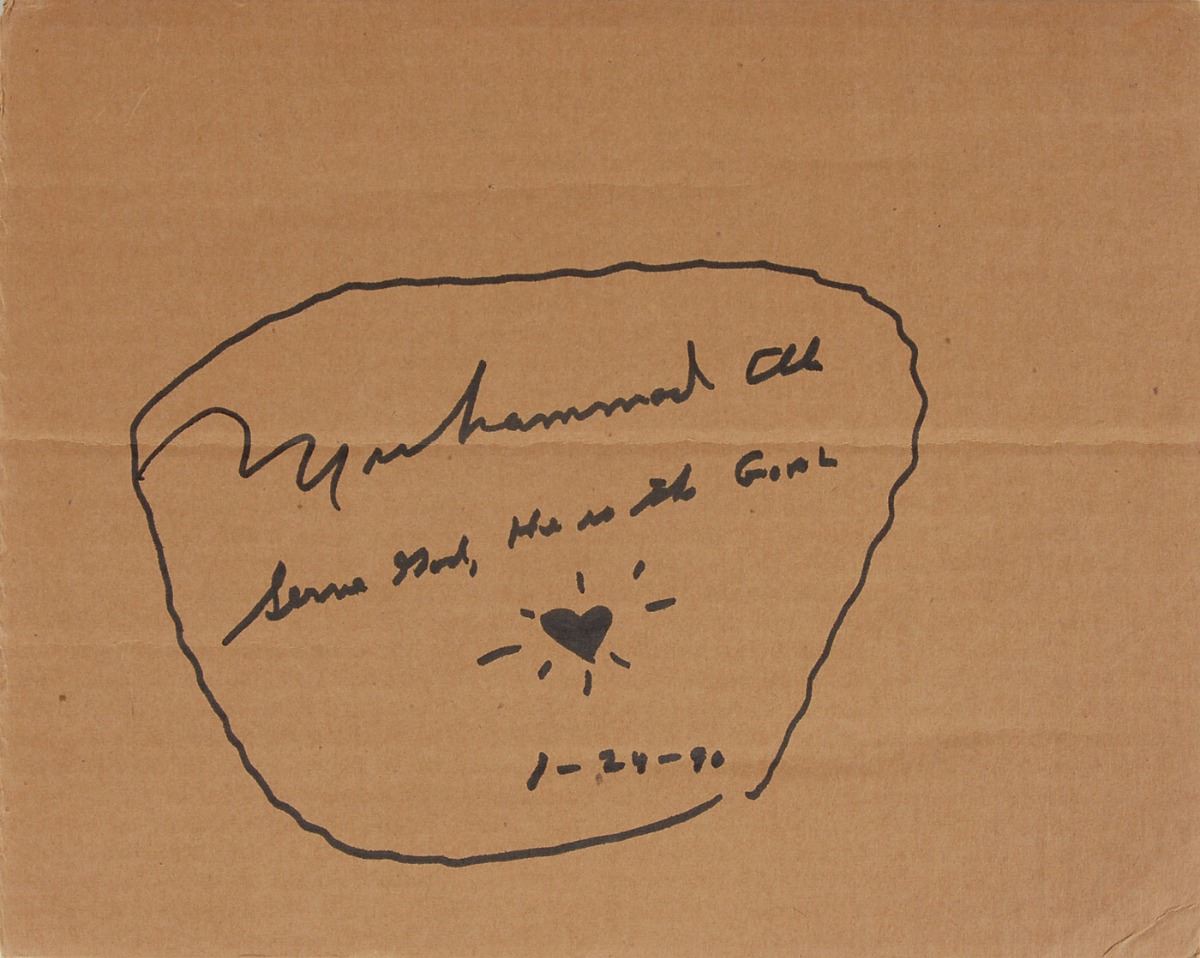 Muhammad Ali
Serve God, He is the Goal
1-24-90